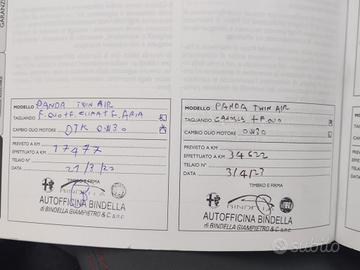 GARANZIA
MODELLO PANDA TWIN AIR
TAGLIANDO F. OLIO + F. CLIMA + F. ARIA
CAMBIO OLIO MOTORE DTK 0W30
PREVISTO A KM
EFFETTUATO A KM 17477
TELAIO N°
DATA 21/3/22
TIMBRO E FIRMA
BINDELLA
AUTOFFICINA BINDELLA
di BINDELLA GIAMPIETRO & C. s.n.c.
MODELLO PANDA TWIN AIR
TAGLIANDO + F. OLIO
CAMBIO OLIO MOTORE 0W30
PREVISTO A KM
EFFETTUATO A KM 34622
TELAIO N°
DATA 3/4/23
TIMBRO E FIRMA
BINDELLA
AUTOFFICINA BINDELLA
di BINDELLA GIAMPIETRO & C. s.n.c.
subito